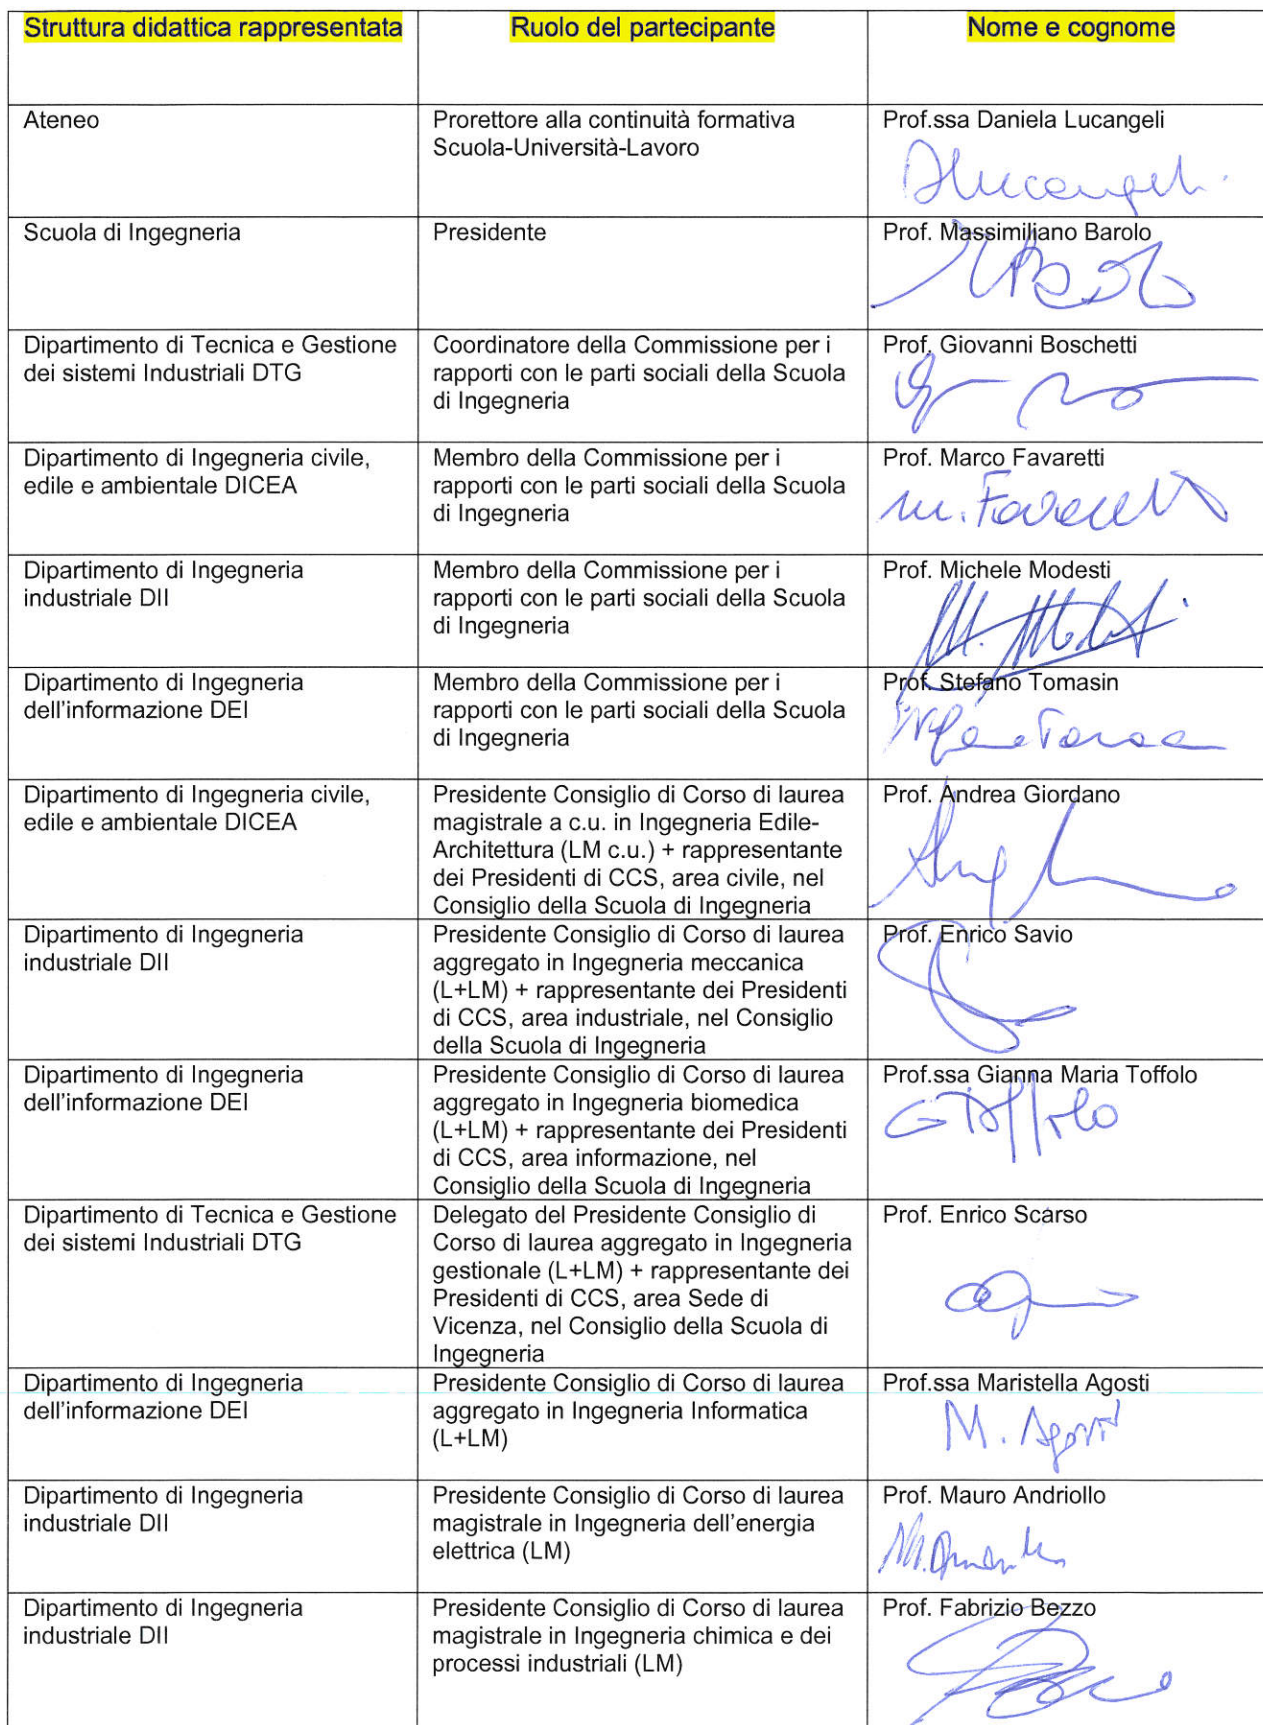 Struttura didattica rappresentata
Ruolo del partecipante
Nome e cognome
Ateneo
Prorettore alla continuità formativa
Scuola-Università-Lavoro
Prof.ssa Daniela Lucangeli
DLucangeli
Scuola di Ingegneria
Presidente
Prof. Massimiliano Barolo
Dipartimento di Tecnica e Gestione
dei sistemi Industriali DTG
Coordinatore della Commissione per i
rapporti con le parti sociali della Scuola
di Ingegneria
Prof. Giovanni Boschetti
Dipartimento di Ingegneria civile,
edile e ambientale DICEA
Membro della Commissione per i
rapporti con le parti sociali della Scuola
di Ingegneria
Prof. Marco Favaretti
M. Favaretti
Dipartimento di Ingegneria
industriale DII
Membro della Commissione per i
rapporti con le parti sociali della Scuola
di Ingegneria
Prof. Michele Modesti
Dipartimento di Ingegneria
dell'informazione DEI
Membro della Commissione per i
rapporti con le parti sociali della Scuola
di Ingegneria
Prof. Stefano Tomasin
Dipartimento di Ingegneria civile,
edile e ambientale DICEA
Presidente Consiglio di Corso di laurea
magistrale a c.u. in Ingegneria Edile-
Architettura (LM c.u.) + rappresentante
dei Presidenti di CCS, area civile, nel
Consiglio della Scuola di Ingegneria
Prof. Andrea Giordano
Dipartimento di Ingegneria
industriale DII
Presidente Consiglio di Corso di laurea
aggregato in Ingegneria meccanica
(L+LM) + rappresentante dei Presidenti
di CCS, area industriale, nel Consiglio
della Scuola di Ingegneria
Prof. Enrico Savio
Dipartimento di Ingegneria
dell'informazione DEI
Presidente Consiglio di Corso di laurea
aggregato in Ingegneria biomedica
(L+LM) + rappresentante dei Presidenti
di CCS, area informazione, nel
Consiglio della Scuola di Ingegneria
Prof.ssa Gianna Maria Toffolo
GToffolo
Dipartimento di Tecnica e Gestione
dei sistemi Industriali DTG
Delegato del Presidente Consiglio di
Corso di laurea aggregato in Ingegneria
gestionale (L+LM) + rappresentante dei
Presidenti di CCS, area Sede di
Vicenza, nel Consiglio della Scuola di
Ingegneria
Prof. Enrico Scarso
Dipartimento di Ingegneria
dell'informazione DEI
Presidente Consiglio di Corso di laurea
aggregato in Ingegneria Informatica
(L+LM)
Prof.ssa Maristella Agosti
M. Agosti
Dipartimento di Ingegneria
industriale DII
Presidente Consiglio di Corso di laurea
magistrale in Ingegneria dell'energia
elettrica (LM)
Prof. Mauro Andriollo
Dipartimento di Ingegneria
industriale DII
Presidente Consiglio di Corso di laurea
magistrale in Ingegneria chimica e dei
processi industriali (LM)
Prof. Fabrizio Bezzo